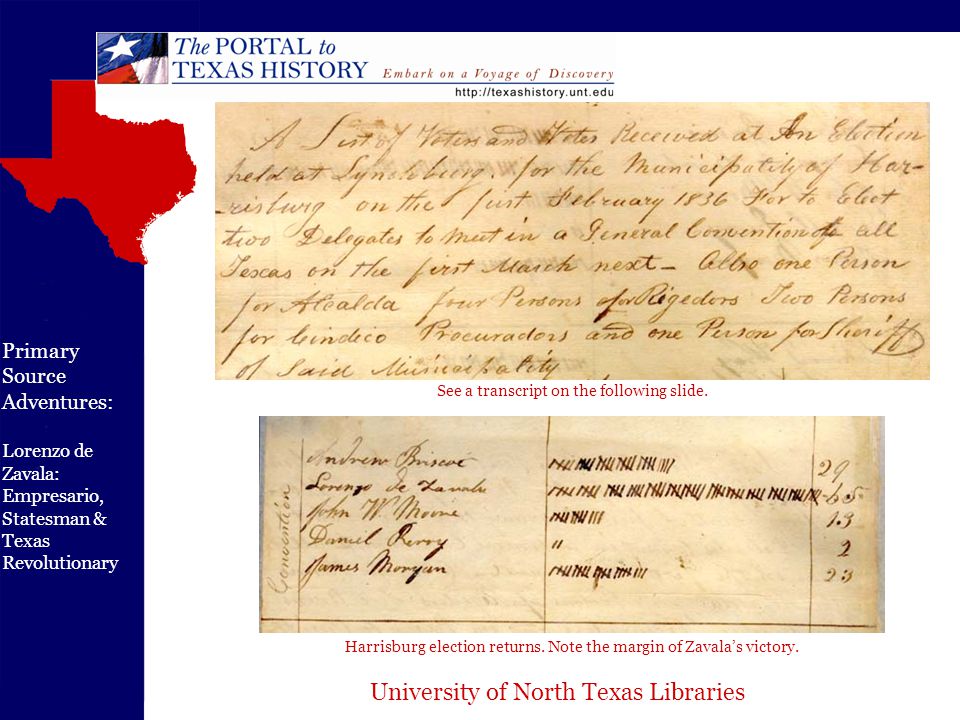 The PORTAL to
TEXAS HISTORY Embark on a Voyage of Discovery
http://texashistory.unt.edu
A List of Voters and Votes Received at An Election
held at Lynchburg for the Municipality of Har-
-risburg on the first February 1836 For to Elect
two Delegates to meet in a General Convention of all
Texas on the first March next - Allso one Person
for Alcalda four Persons for Rigedors Two Persons
for Cindico Procuradors and one Person for Sheriff
of Said Municipality
See a transcript on the following slide.
Primary
Source
Adventures:
Lorenzo de
Zavala:
Empresario,
Statesman &
Texas
Revolutionary
Convention
Andrew Briscoe 29
Lorenzo de Zavala 65
John W. Moore 13
Daniel Perry 2
James Morgan 23
Harrisburg election returns. Note the margin of Zavala’s victory.
University of North Texas Libraries